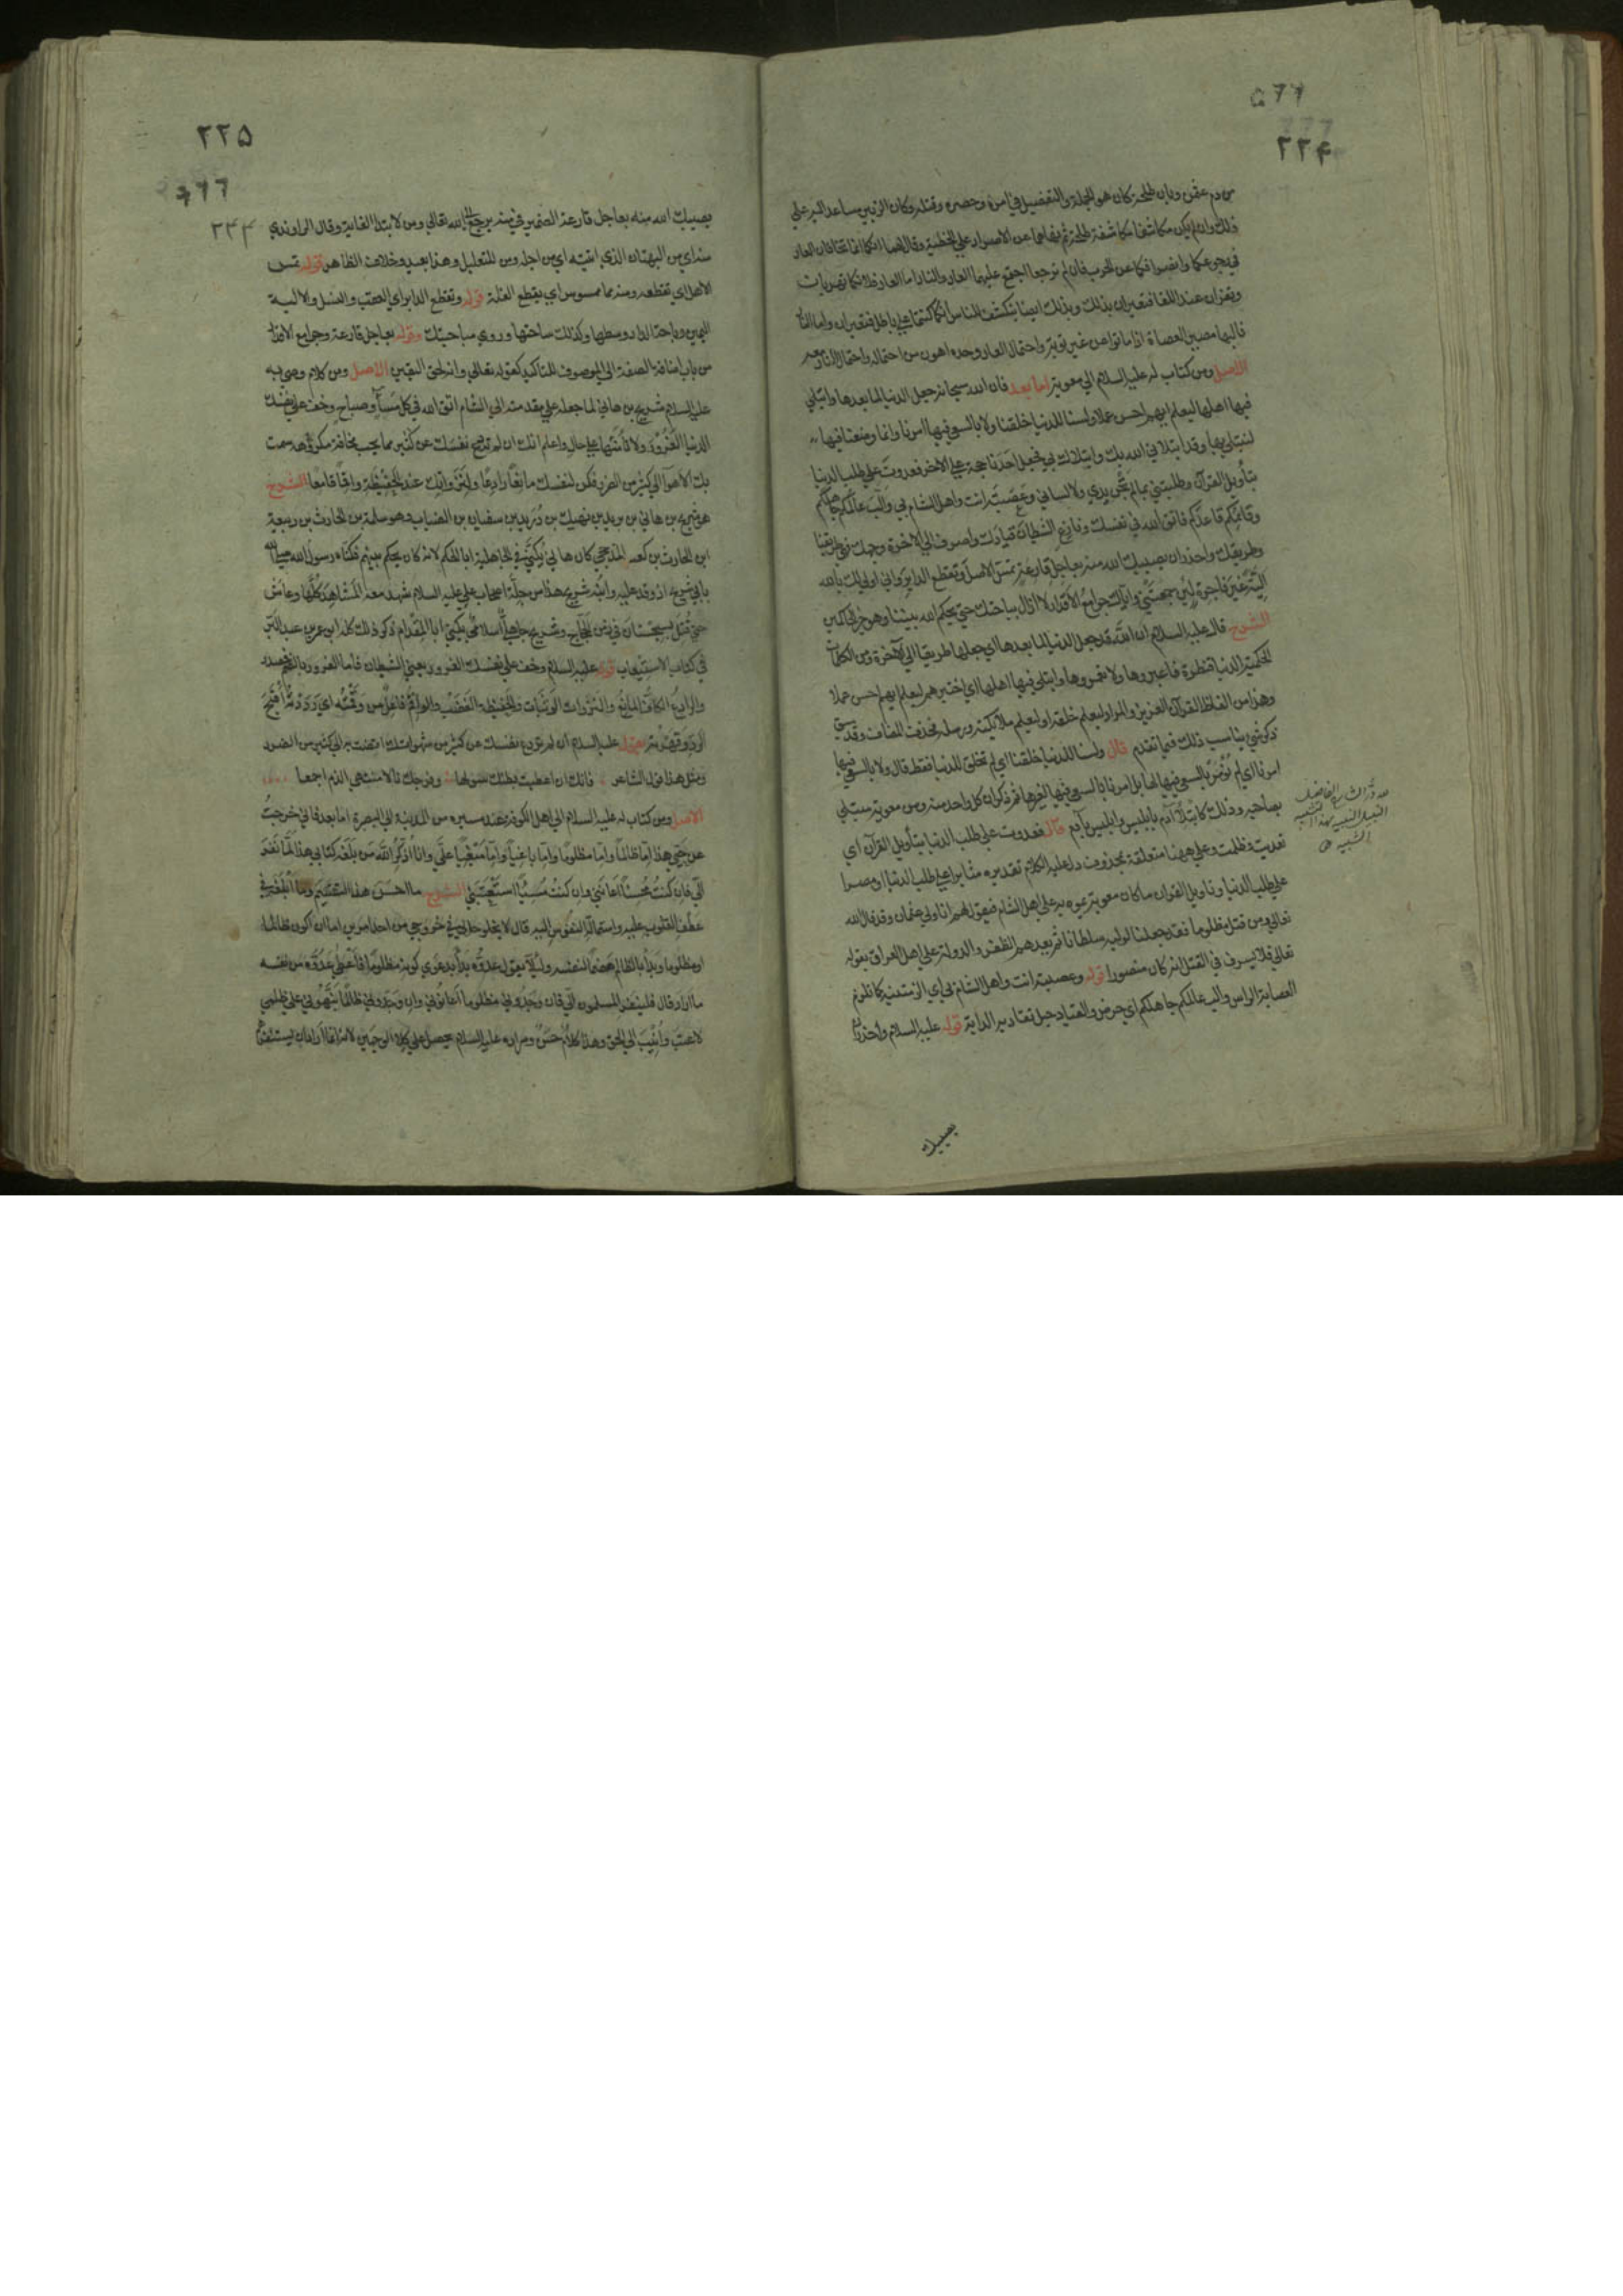 ٢٢۴
من دم عثمن وبان طلحة كان هو الجملة والتفصيل في امره وحصره وقتله وكان الزبير مساعدا له علي
ذلك وان لم يكن مكاشفا مكاشفة طلحة ثم نهاهما عن الاصرار علي الخطيئة وقال لهما انكما انما تخافان العار
في رجوعكما وانصرافكما عن الحرب فان لم ترجعا اجتمع عليكما العار والنار اما العار فلانكما تهزمان
وتفران عند اللقا فتعيران بذلك وبذلك ايضا ينكشف للناس انكما كنتما علي باطل فتعيران واما النار
فاليها مصير العصاة اذا ماتوا من غير توبة واحتمال العار وحده اهون من احتماله واحتمال النار معه
الاصل ومن كتاب له عليه السلام الي معوية اما بعد فان الله سبحانه جعل الدنيا لما بعدها وابتلي
فيها اهلها ليعلم ايهم احسن عملا ولسنا للدنيا خلقنا ولا بالسعي فيها امرنا وانما وضعنا فيها
لنبتلي بها وقد ابتلاني الله بك وابتلاك بي فجعل احدنا حجة علي الاخر فعدوت علي طلب الدنيا
بتأويل القرآن وطلبتني بما لم تجن يدي ولا لساني وعصبته انت واهل الشام بي والب عالمكم جاهلكم
وقائمكم قاعدكم فاتق الله في نفسك ونازع الشيطان قيادك واصرف الي الاخرة وجهك فهي طريقنا
وطريقك واحذر ان يصيبك الله منه بعاجل قارعة تمس الاصل وتقطع الدابر واني اولي لك بالله
الية غير فاجرة لئن جمعتني واياك جوامع الاقدار لا ازال بباحتك حتي يحكم الله بيننا وهو خير الحاكمين
الشرح قال عليه السلام ان الله قد جعل الدنيا لما بعدها اي جعلها طريقا الي الآخرة ومن الكلمات
الحكمية الدنيا قنطرة فاعبروها ولا تعمروها وابتلي فيها اهلها اي اختبرهم ليعلم ايهم احسن عملا
وهذا من الفاظ القرآن العزيز والمراد ليعلم خلقه او ليعلم ملائكته ورسله فحذف المضاف وقد سبق
ذكر شي يناسب ذلك فيما تقدم قال ولسنا للدنيا خلقنا اي لم نخلق للدنيا فقط قال ولا بالسعي فيها
امرنا اي لم نؤمر بالسعي فيها لها بل امرنا بالسعي فيها لغيرها ثم ذكر ان كل واحد منه ومن معوية مبتلي
بصاحبه وذلك كابتلاء آدم بابليس وابليس بآدم قال فعدوت علي طلب الدنيا بتأويل القرآن اي
تعديت وظلمت وعلي ههنا متعلقة بمحذوف دل عليه الكلام تقديره مثابرا علي طلب الدنيا او مصرا
علي طلب الدنيا وتاويل القران ما كان معوية يموه به علي اهل الشام فيقول لهم انا ولي عثمان وقد قال الله
تعالي ومن قتل مظلوما فقد جعلنا لوليه سلطانا ثم يعدهم الظفر والدولة علي اهل العراق بقوله
تعالي فلا يسرف في القتل انه كان منصورا قوله وعصبته انت واهل الشام بي اي الزمتنيه كما تلزم
العصابة الراس والب عالمكم جاهلكم اي حرض والقياد حبل تقاد به الدابة قوله عليه السلام واحذر ان
لله در الشارح الفاضل
النبيل
بهذا التشبيه
يصيبك
٢٢۵
٢٣۴
يصيبك الله منه بعاجل قارعة الضمير في منه يرجع الي الله تعالي ومن لابتدا الغاية وقال الراوندي
منه اي من البهتان الذي اتيته اي من اجله ومن للتعليل وهذا بعيد وخلاف الظاهر قوله تمس
الاصل اي تقطعه ومنه ماء ممسوس اي يقطع الغلة قوله وتقطع الدابر اي العقب والنسل والالية
اليمين وباحة الدار وسطها وكذلك ساحتها وروي بساحتك وقوله بعاجل قارعة وجوامع الاقدار
من باب اضافة الصفة الي الموصوف للتاكيد كقوله تعالي وانه لحق اليقين الاصل ومن كلام وصي به
عليه السلام شريح بن هاني لما جعله علي مقدمته الي الشام اتق الله في كل مساء وصباح وخف علي نفسك
الدنيا الغرور ولا تأمنها علي حال واعلم انك ان لم تردع نفسك عن كثير مما تحب مخافة مكروهه سمت
بك الاهوآ الي كثير من الضرر فكن لنفسك مانعا رادعا ولنزوتك عند الحفيظة واقما قامعا الشرح
هو شريح بن هاني بن يزيد بن نهيك بن دريد بن سفيان بن الضباب وهو سلمة بن الحارث بن ربيعة
ابن الحارث بن كعب المذحجي كان هاني يكني في الجاهلية ابا الحكم لانه كان يحكم بينهم فكناه رسول الله صلي الله
بابي شريح اذ وفد عليه وابنه شريح هذا من جلة اصحاب علي عليه السلام شهد معه المشاهد كلها وعاش
حتي قتل بسجستان في زمن الحجاج وشريح جاهلي اسلامي يكني ابا المقدام ذكر ذلك كله ابو عمر بن عبد البر
في كتاب الاستيعاب قوله عليه السلام وخف علي نفسك الغرور يعني الشيطان فاما الغرور بالضم فمصدر
والرادع الكاف المانع والنزوات الوثبات والحفيظة الغضب والواقم فاعل من وقمته اي رددته اقبح
الرد وقهرته يقول عليه السلام ان لم تردع نفسك عن كثير من شهواتك افضت بك الي كثير من الضرر
ومثل هذا قول الشاعر فانك ان اعطيت بطنك سولها وفرجك نالا منتهي الذم اجمعا
الاصل ومن كتاب له عليه السلام الي اهل الكوفة عند مسيره من المدينة الي البصرة اما بعد فاني خرجت
عن حيي هذا اما ظالما واما مظلوما واما باغيا واما مبغيا علي وانا اذكر الله من بلغه كتابي هذا لما نفر
الي فان كنت محسنا اعانني وان كنت مسيئا استعتبني الشرح ما احسن هذا التقسيم وما ابلغه في
عطف القلوب عليه واستمالة النفوس اليه قال لا يخلو حالي في خروجي من احد امرين اما ان اكون ظالما
او مظلوما وبدأ بالظالم هضما لنفسه ولئلا يقول عدوه بدأ بدعوي كونه مظلوما فاعطي عدوه من نفسه
ما اراد قال فلينفر المسلمون الي فان وجدوني مظلوما اعانوني وان وجدوني ظالما نهوني عن ظلمي
لاعتب وانيب الي الحق وهذا كلام حسن ومراده عليه السلام يحصل علي كلا الوجهين لانه انما اراد ان يستنفرهم